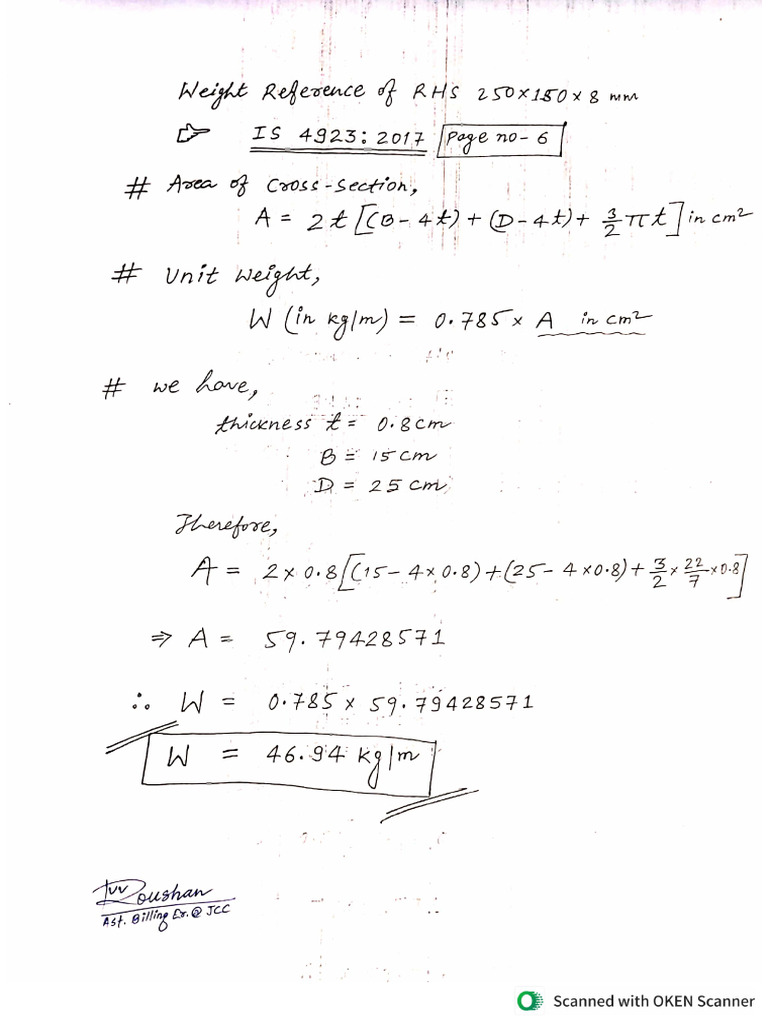 Weight Reference of RHS 250×150×8 mm
☞ IS 4923:2017 Page no-6
# Area of Cross-section,
A = 2t[(B-4t)+(D-4t)+3/2πt] in cm²
# Unit Weight,
W (in kg/m) = 0.785× A in cm²
# we have,
thickness t = 0.8cm
B = 15cm
D = 25cm
Therefore,
A = 2×0.8[(15-4×0.8)+(25-4×0.8)+3/2×22/7×0.8]
⇒ A = 59.79428571
∴ W = 0.785×59.79428571
W = 46.94 kg/m
Roushan
Ast. Billing Er.@JCC
Scanned with OKEN Scanner